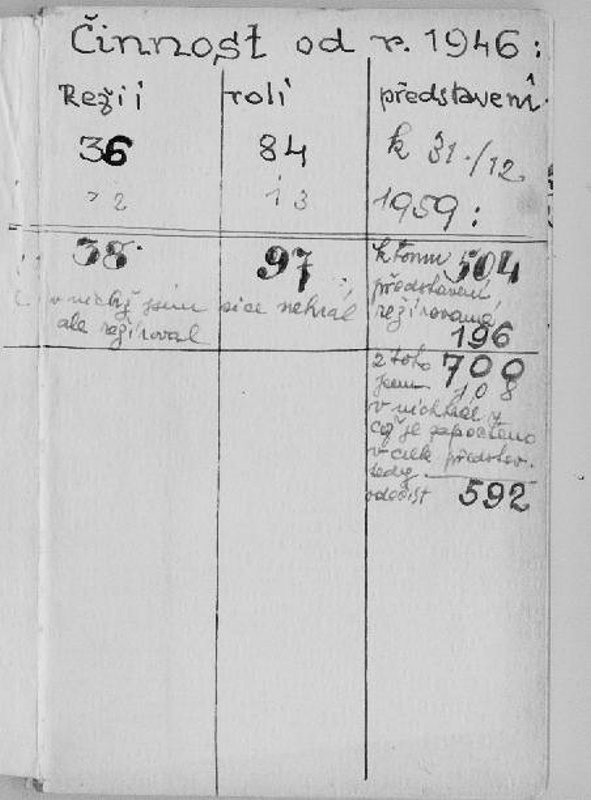 Činnost od r. 1946:
Režií rolí představení
36 84 k 31./12.
2 13 1959:
38 97 k tomu 504
představení,
v nichž jsem sice nehrál
režírovaná,
ale režíroval
196
z toho 700
jsem 108
v nich hrál
což je započteno
v celk. představ.
tedy
odečíst 592